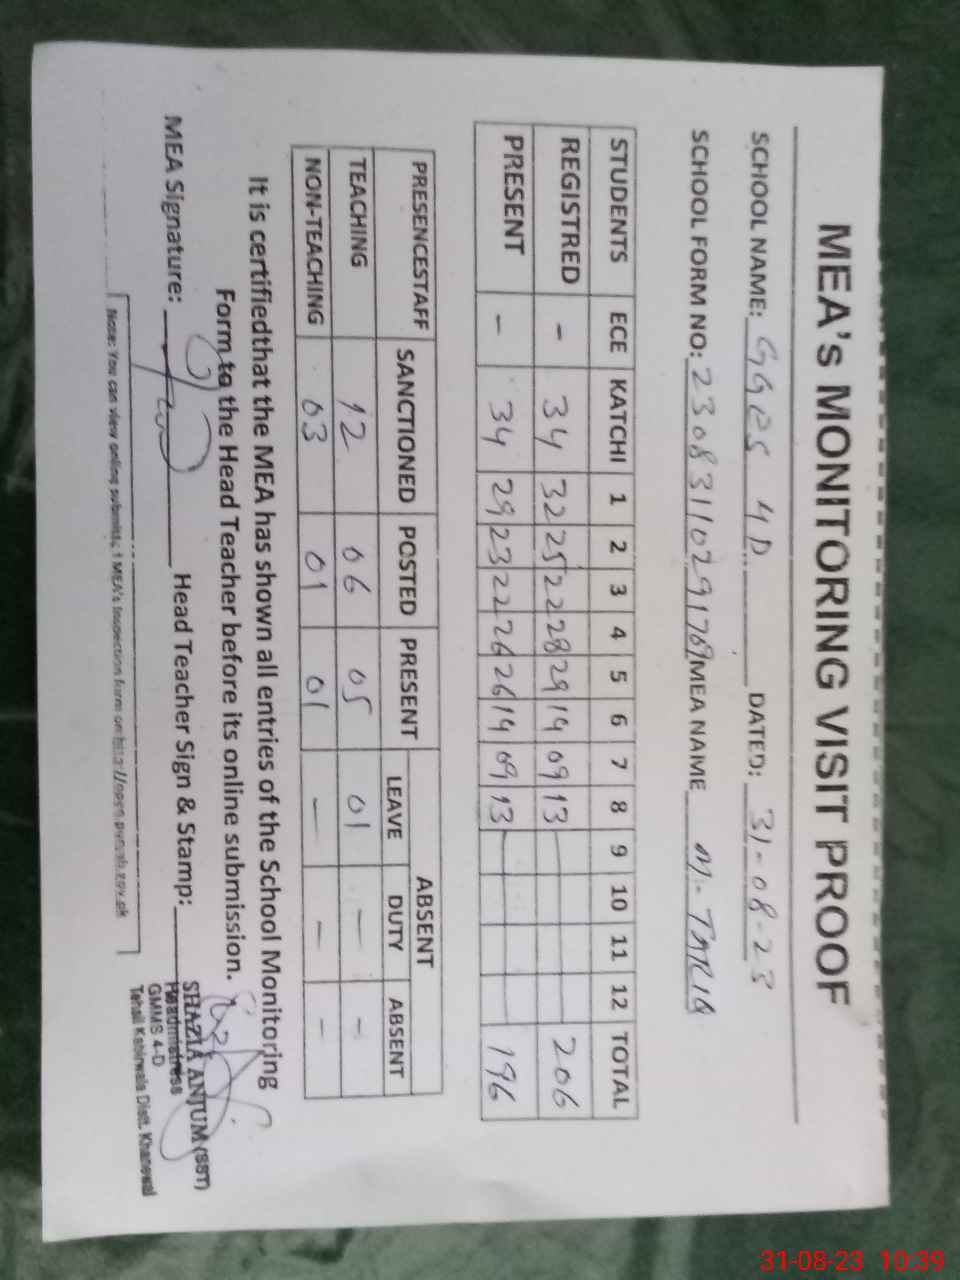 MEA's MONITORING VISIT PROOF
SCHOOL NAME: GGES 4D. DATED: 31-08-23
SCHOOL FORM NO: 23083110291769 MEA NAME M. TARIQ
STUDENTS ECE KATCHI 1 2 3 4 5 6 7 8 9 10 11 12 TOTAL
REGISTRED - 34 32 25 22 28 29 14 09 13 206
PRESENT - 34 29 23 22 26 26 14 09 13 196
PRESENCESTAFF SANCTIONED POSTED PRESENT ABSENT
LEAVE DUTY ABSENT
TEACHING 12 06 05 01 - -
NON-TEACHING 03 01 01 - - -
It is certifiedthat the MEA has shown all entries of the School Monitoring
Form to the Head Teacher before its online submission.
MEA Signature: Head Teacher Sign & Stamp:
SHAZIA ANJUM (SST)
Headmistress
GMMS 4-D
Tehsil Kabirwala Distt. Khanewal
Note: You can view online submitted MEA's Inspection form on
31-08-23 10:39